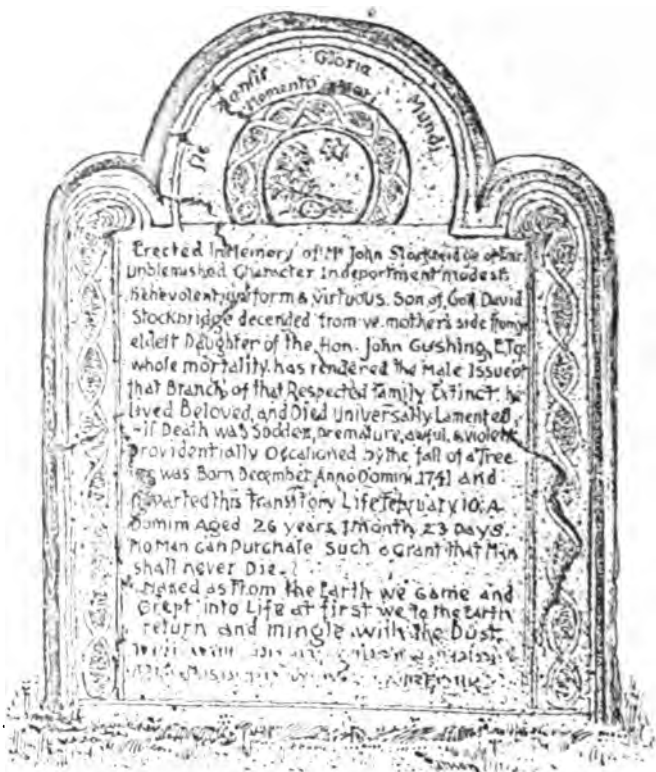 Gloria
Mundi
Momento Mori
Erected In Memory of Mr John Stockbridge of
unblemished Character In deportment modest
Benevolent, uniform & virtuous. Son of David
Stockbridge decended from ye mother's side from ye
eldest Daughter of the Hon. John Cushing, ETq
whole mortality has rendered the Male Issue of
that Branch of that Respected Family Extinct. he
lived Beloved, and Died universally Lamented
Death was Sodden, premature, awful, & violent
Providentially Occasioned by the fall of a Tree
was Born December Anno Domini 1741 and
departed this Transitory Life February 10: A
Domini Aged 26 years 1 Month 23 Days
No Man Can Purchase Such a Grant that Man
shall never Die.
Naked as From the Earth we Came and
Crept into Life at first we to the Earth
return and mingle with the Dust